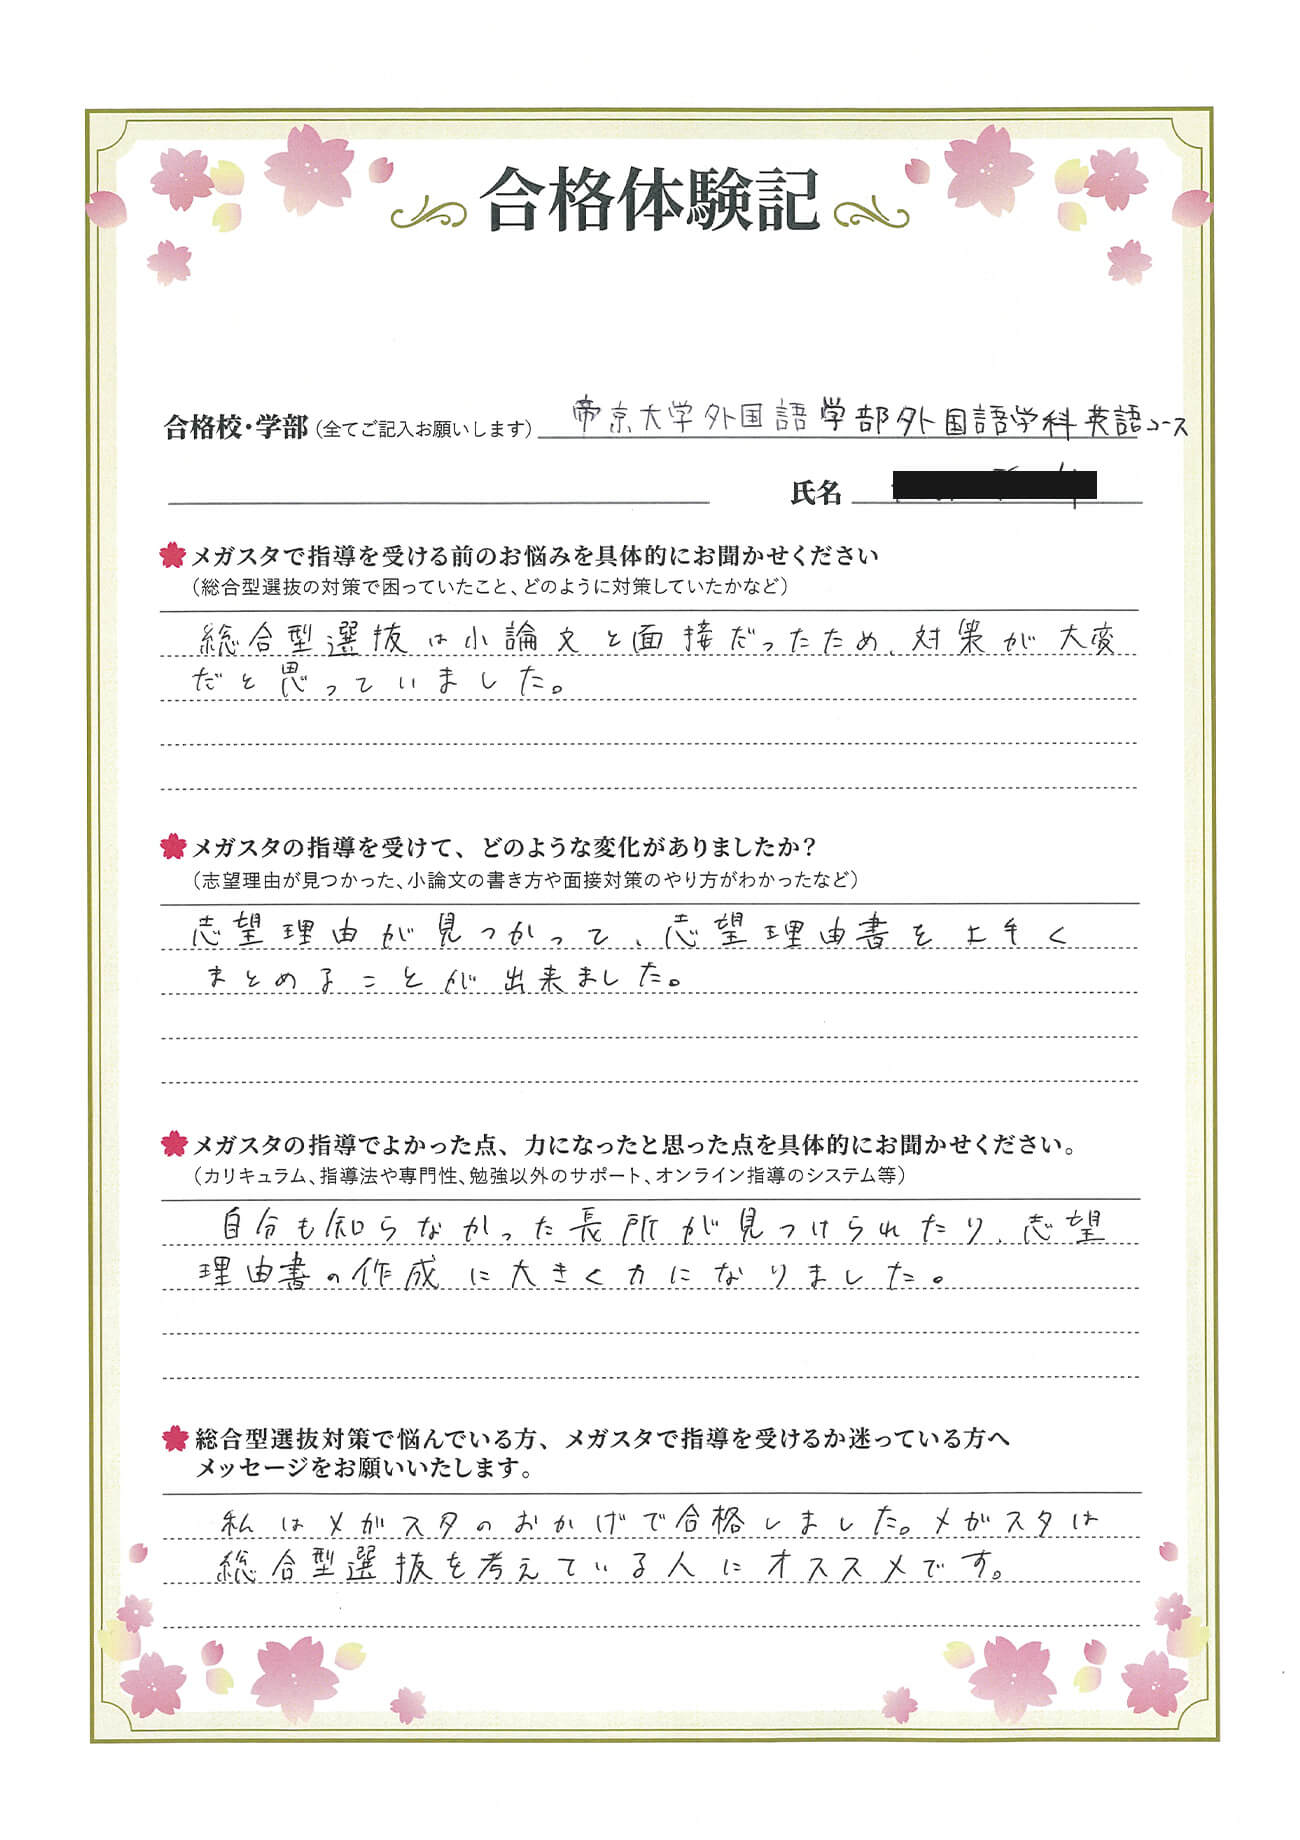 合格体験記
合格校・学部（全てご記入お願いします） 帝京大学外国語学部外国語学科英語コース
氏名
メガスタで指導を受ける前のお悩みを具体的にお聞かせください
（総合型選抜の対策で困っていたこと、どのように対策していたかなど）
総合型選抜は小論文と面接だったため、対策が大変
だと思っていました。
メガスタの指導を受けて、どのような変化がありましたか？
（志望理由が見つかった、小論文の書き方や面接対策のやり方がわかったなど）
志望理由が見つかって、志望理由書を上手く
まとめることが出来ました。
メガスタの指導でよかった点、力になったと思った点を具体的にお聞かせください。
（カリキュラム、指導法や専門性、勉強以外のサポート、オンライン指導のシステム等）
自分も知らなかった長所が見つけられたり、志望
理由書の作成に大きく力になりました。
総合型選抜対策で悩んでいる方、メガスタで指導を受けるか迷っている方へ
メッセージをお願いいたします。
私はメガスタのおかげで合格しました。メガスタは
総合型選抜を考えている人にオススメです。